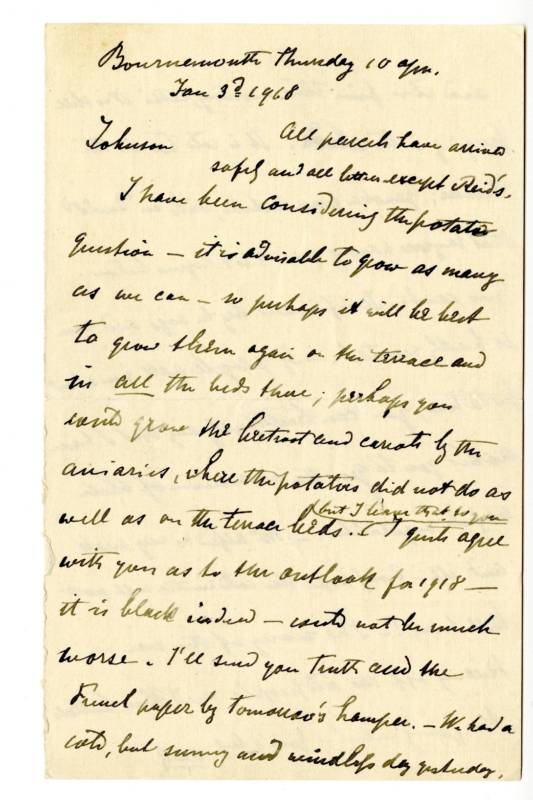 Bournemouth Thursday 10 a.m.
Jan 3rd. 1918
Johnson All parcels have arrived
safely and all letters except Reid's.
I have been considering the potato
question – it is advisable to grow as many
as we can – so perhaps it will be best
to grow them again on the terrace and
in all the beds there; perhaps you
could grow the beetroot and carrots by the
aviaries, where the potatoes did not do as
(but I leave that to you
well as on the terrace beds. I quite agree
with you as to the outlook for 1918 –
it is black indeed – could not be much
worse. I'll send you Truth and the
French paper by tomorrow's hamper. – We had a
cold, but sunny and windless day yesterday.